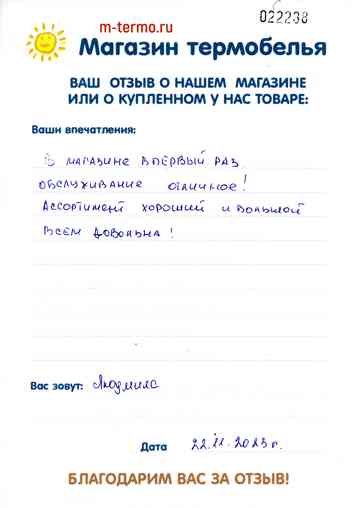 m-termo.ru
022238
Магазин термобелья
ВАШ ОТЗЫВ О НАШЕМ МАГАЗИНЕ
ИЛИ О КУПЛЕННОМ У НАС ТОВАРЕ:
Ваши впечатления:
В магазине впервый раз
обслуживание отличное!
Ассортимент хороший и большой
Всем довольна!
Вас зовут: Людмила
Дата 22.11.2023 г.
БЛАГОДАРИМ ВАС ЗА ОТЗЫВ!